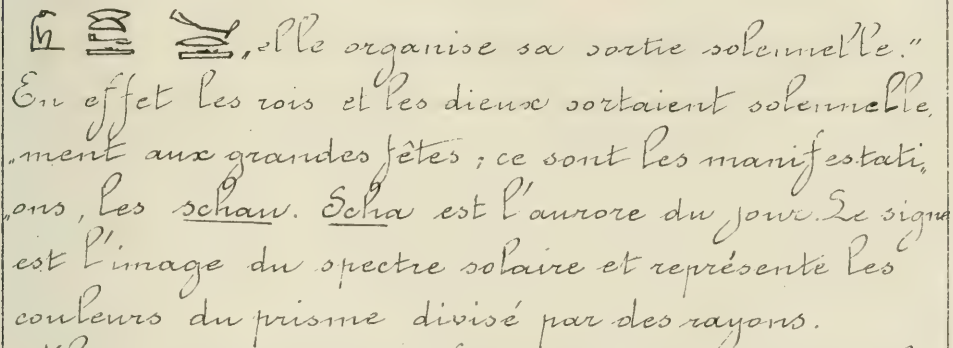 , elle organise sa sortie solennelle."
En effet les rois et les dieux sortaient solennelle„
„ment aux grandes fêtes ; ce sont les manifestati„
„ons, les schau. Scha est l'aurore du jour. Le signe
est l'image du spectre solaire et représente les
couleurs du prisme divisé par des rayons.